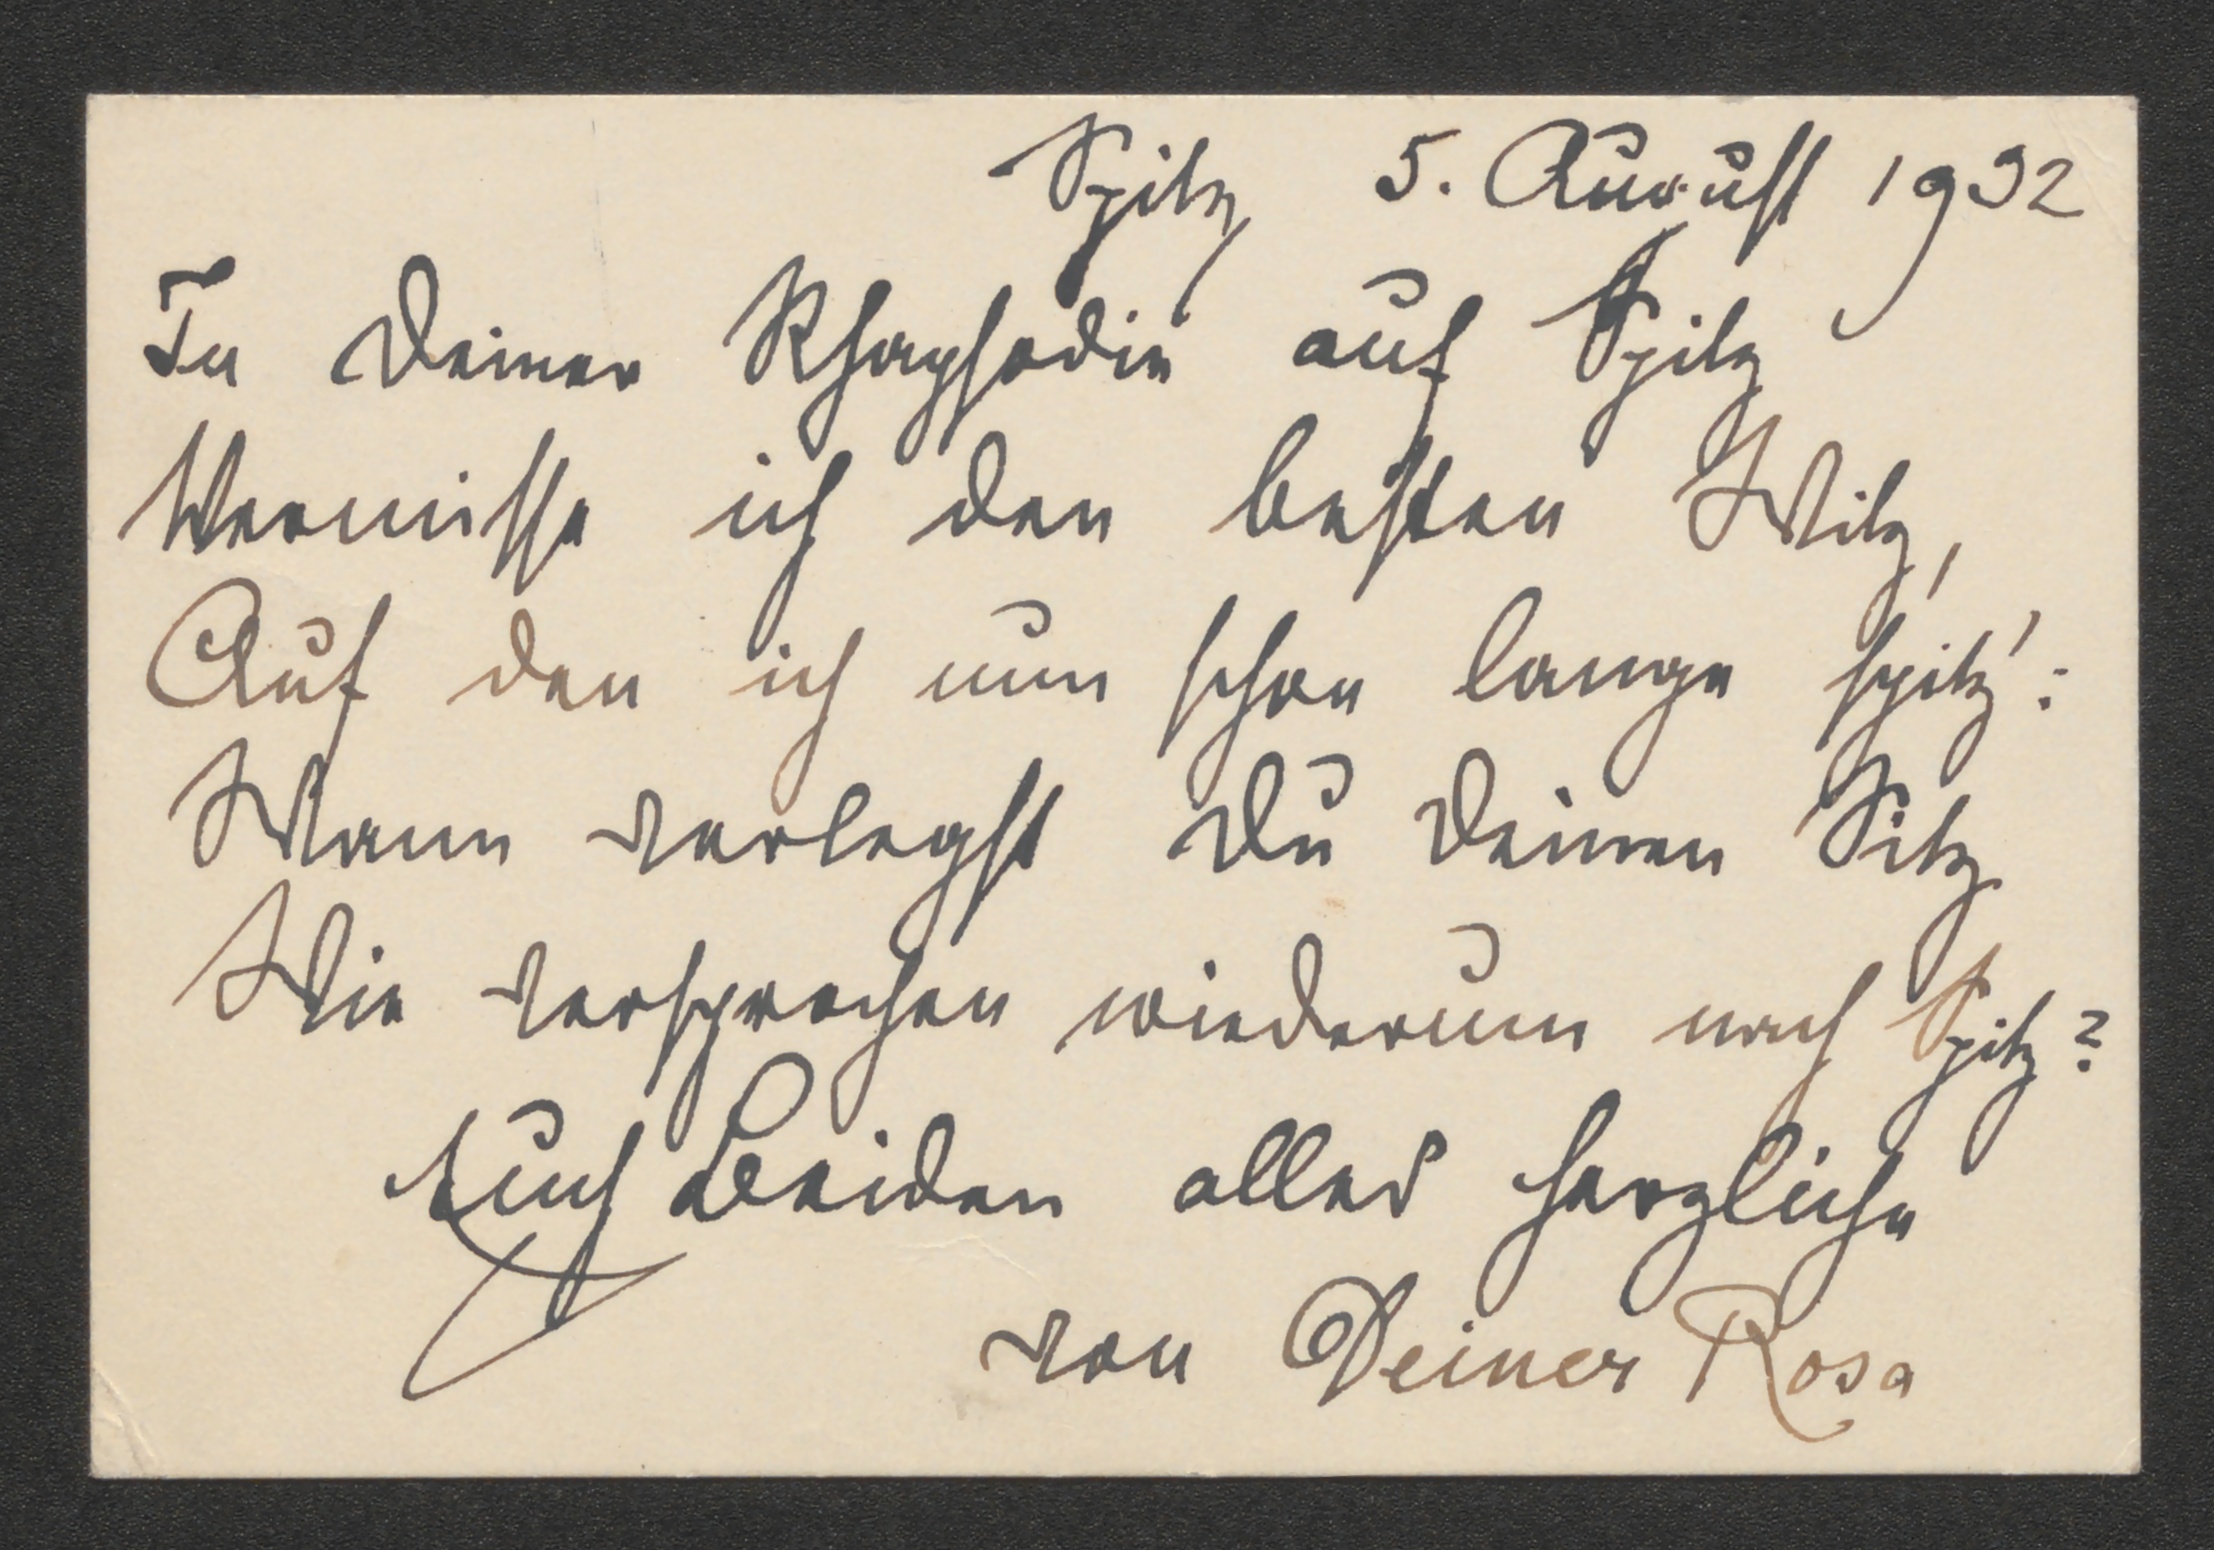 Spitz 5. August 1932
In Deiner Rhapsodie auf Spitz
Vermisse ich den besten Witz,
Auf den ich nun schon lange spitz':
Wann verlegst Du Deinen Sitz
Wie versprochen wiederum nach Spitz?
Euch Beiden alles herzliche
von Deiner Rosa